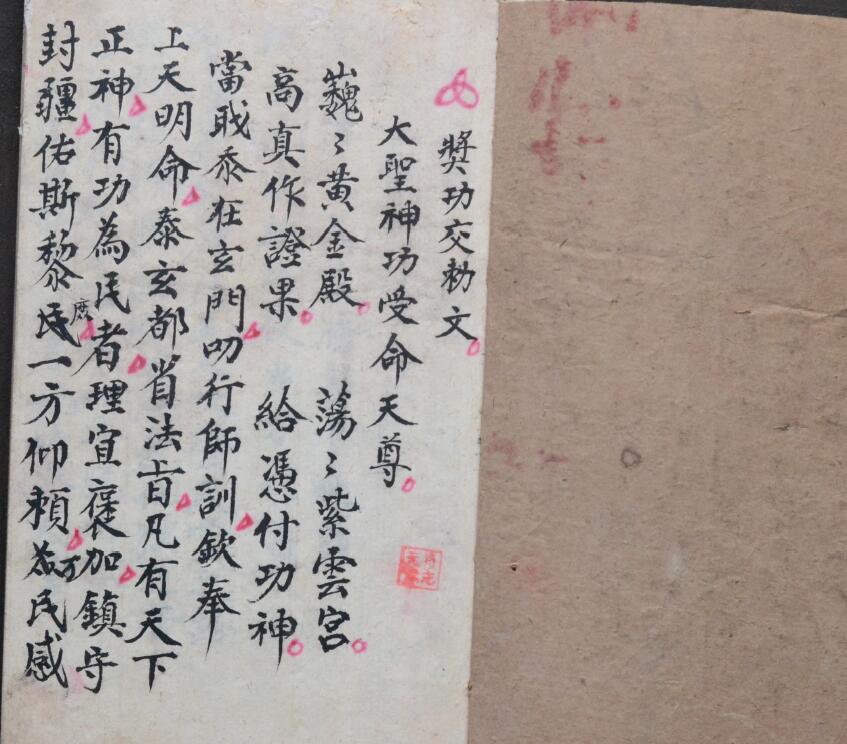 獎功交勅文
大聖神功受命天尊
巍〻黃金殿 蕩〻紫雲宮
高真作證果 給憑付功神
當職忝在玄門叨行師訓欽奉
上天明命泰玄都省法旨凡有天下
正神有功為民者理宜褒加鎮守
封疆佑斯黎庶民一方仰賴為民感